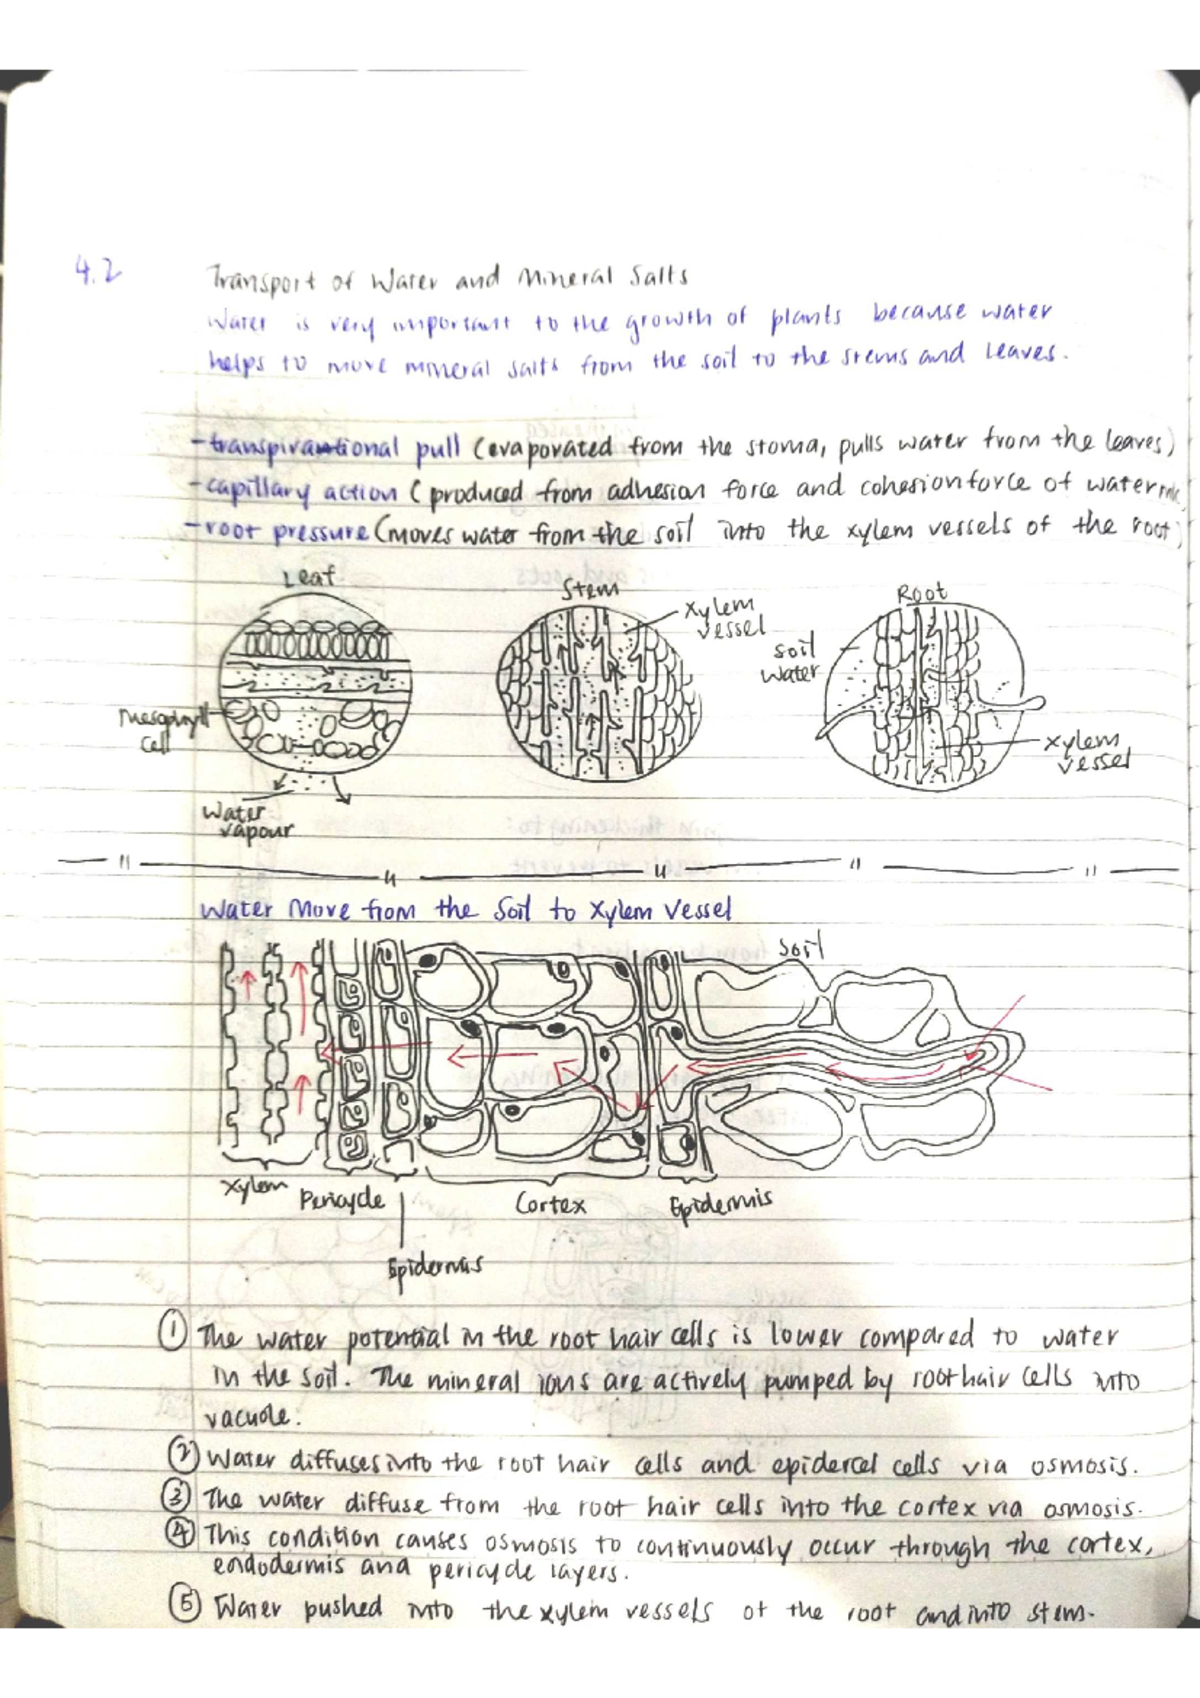 4.2 Transport of Water and Mineral Salts
Water is very important to the growth of plants because water
helps to move mineral salts from the soil to the stems and leaves.
- transpirational pull (evaporated from the stoma, pulls water from the leaves)
- capillary action (produced from adhesion force and cohesion force of water
- root pressure (moves water from the soil into the xylem vessels of the root)
Leaf
Stem
Root
xylem
vessel
soil
water
Mesophyll
cell
xylem
vessel
Water
vapour
Water Move from the Soil to Xylem Vessel
Soil
Xylem
Pericycle
Cortex
Epidermis
Epidermis
① The water potential in the root hair cells is lower compared to water
in the soil. The mineral ions are actively pumped by root hair cells into
vacuole.
② Water diffuses into the root hair cells and epidercel cells via osmosis.
③ The water diffuse from the root hair cells into the cortex via osmosis.
④ This condition causes osmosis to continuously occur through the cortex,
endodermis and pericycle layers.
⑤ Water pushed into the xylem vessels of the root and into stem.